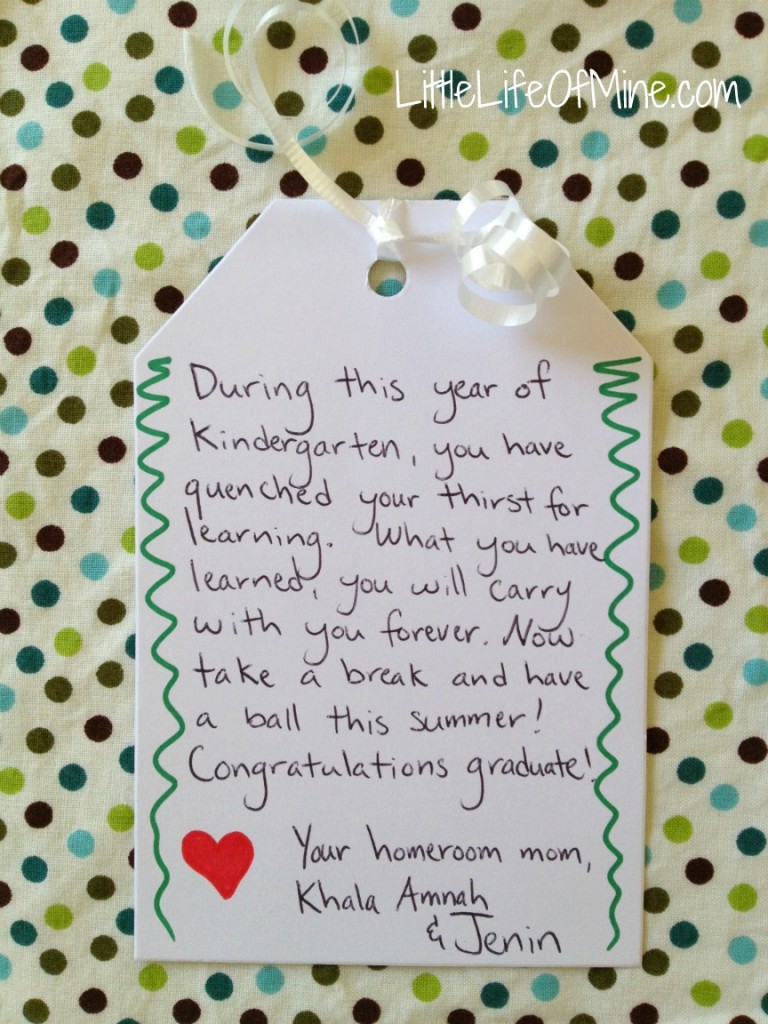 LittleLifeOfMine.com
During this year of
Kindergarten, you have
quenched your thirst for
learning. What you have
learned, you will carry
with you forever. Now
take a break and have
a ball this summer!
Congratulations graduate!
Your homeroom mom,
Khala Amnah
& Jenin